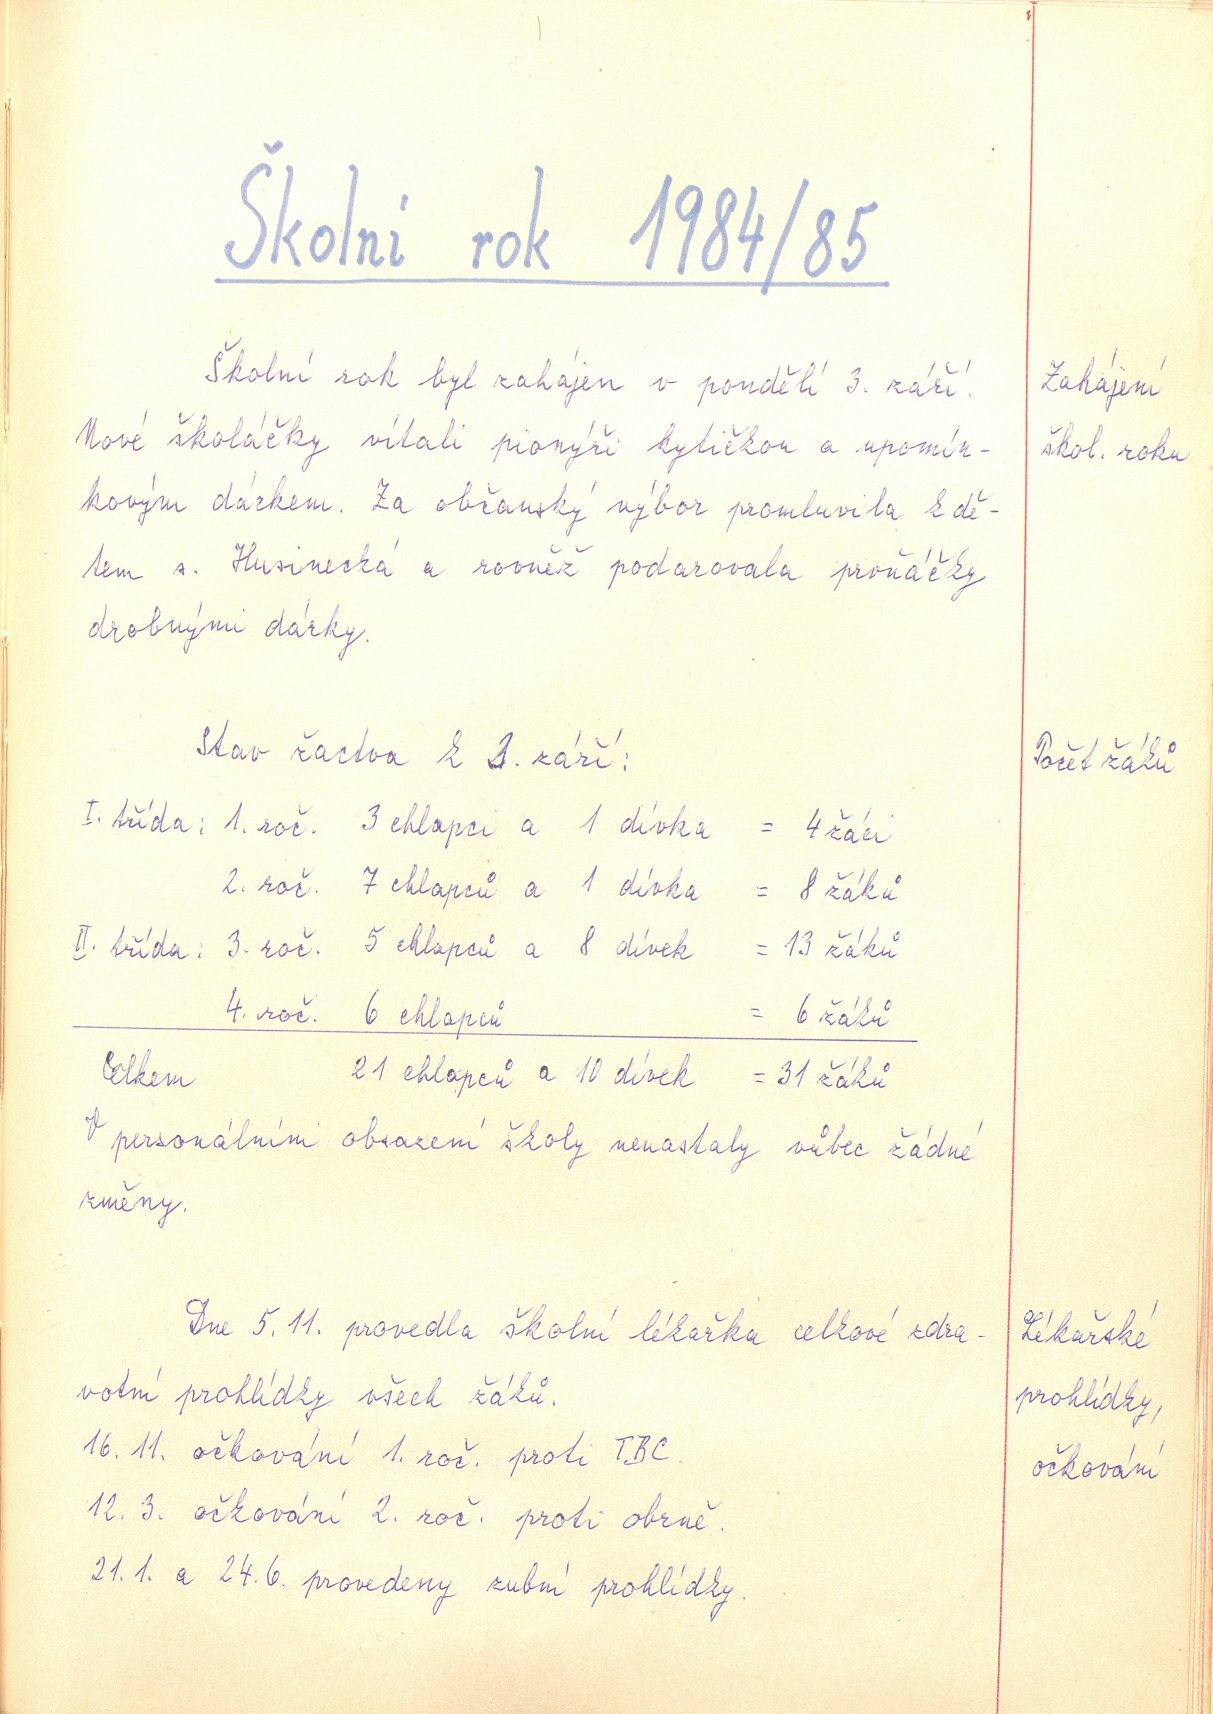 Školní rok 1984/85
Školní rok byl zahájen v pondělí 3. září.
Zahájení
Nové školáčky vítali pionýři kytičkou a upomín-
škol. roku
kovým dárkem. Za občanský výbor promluvila k dě-
tem s. Husinecká a rovněž podarovala prvňáčky
drobnými dárky.
Stav žactva k 3. září:
Počet žáků
I. třída: 1. roč. 3 chlapci a 1 dívka = 4 žáci
2. roč. 7 chlapců a 1 dívka = 8 žáků
II. třída: 3. roč. 5 chlapců a 8 dívek = 13 žáků
4. roč. 6 chlapců = 6 žáků
Celkem 21 chlapců a 10 dívek = 31 žáků
V personálním obsazení školy nenastaly vůbec žádné
změny.
Dne 5. 11. provedla školní lékařka celkové zdra-
Lékařské
votní prohlídky všech žáků.
prohlídky,
16. 11. očkování 1. roč. proti TBC.
očkování
12. 3. očkování 2. roč. proti obrně.
21. 1. a 24. 6. provedeny zubní prohlídky.